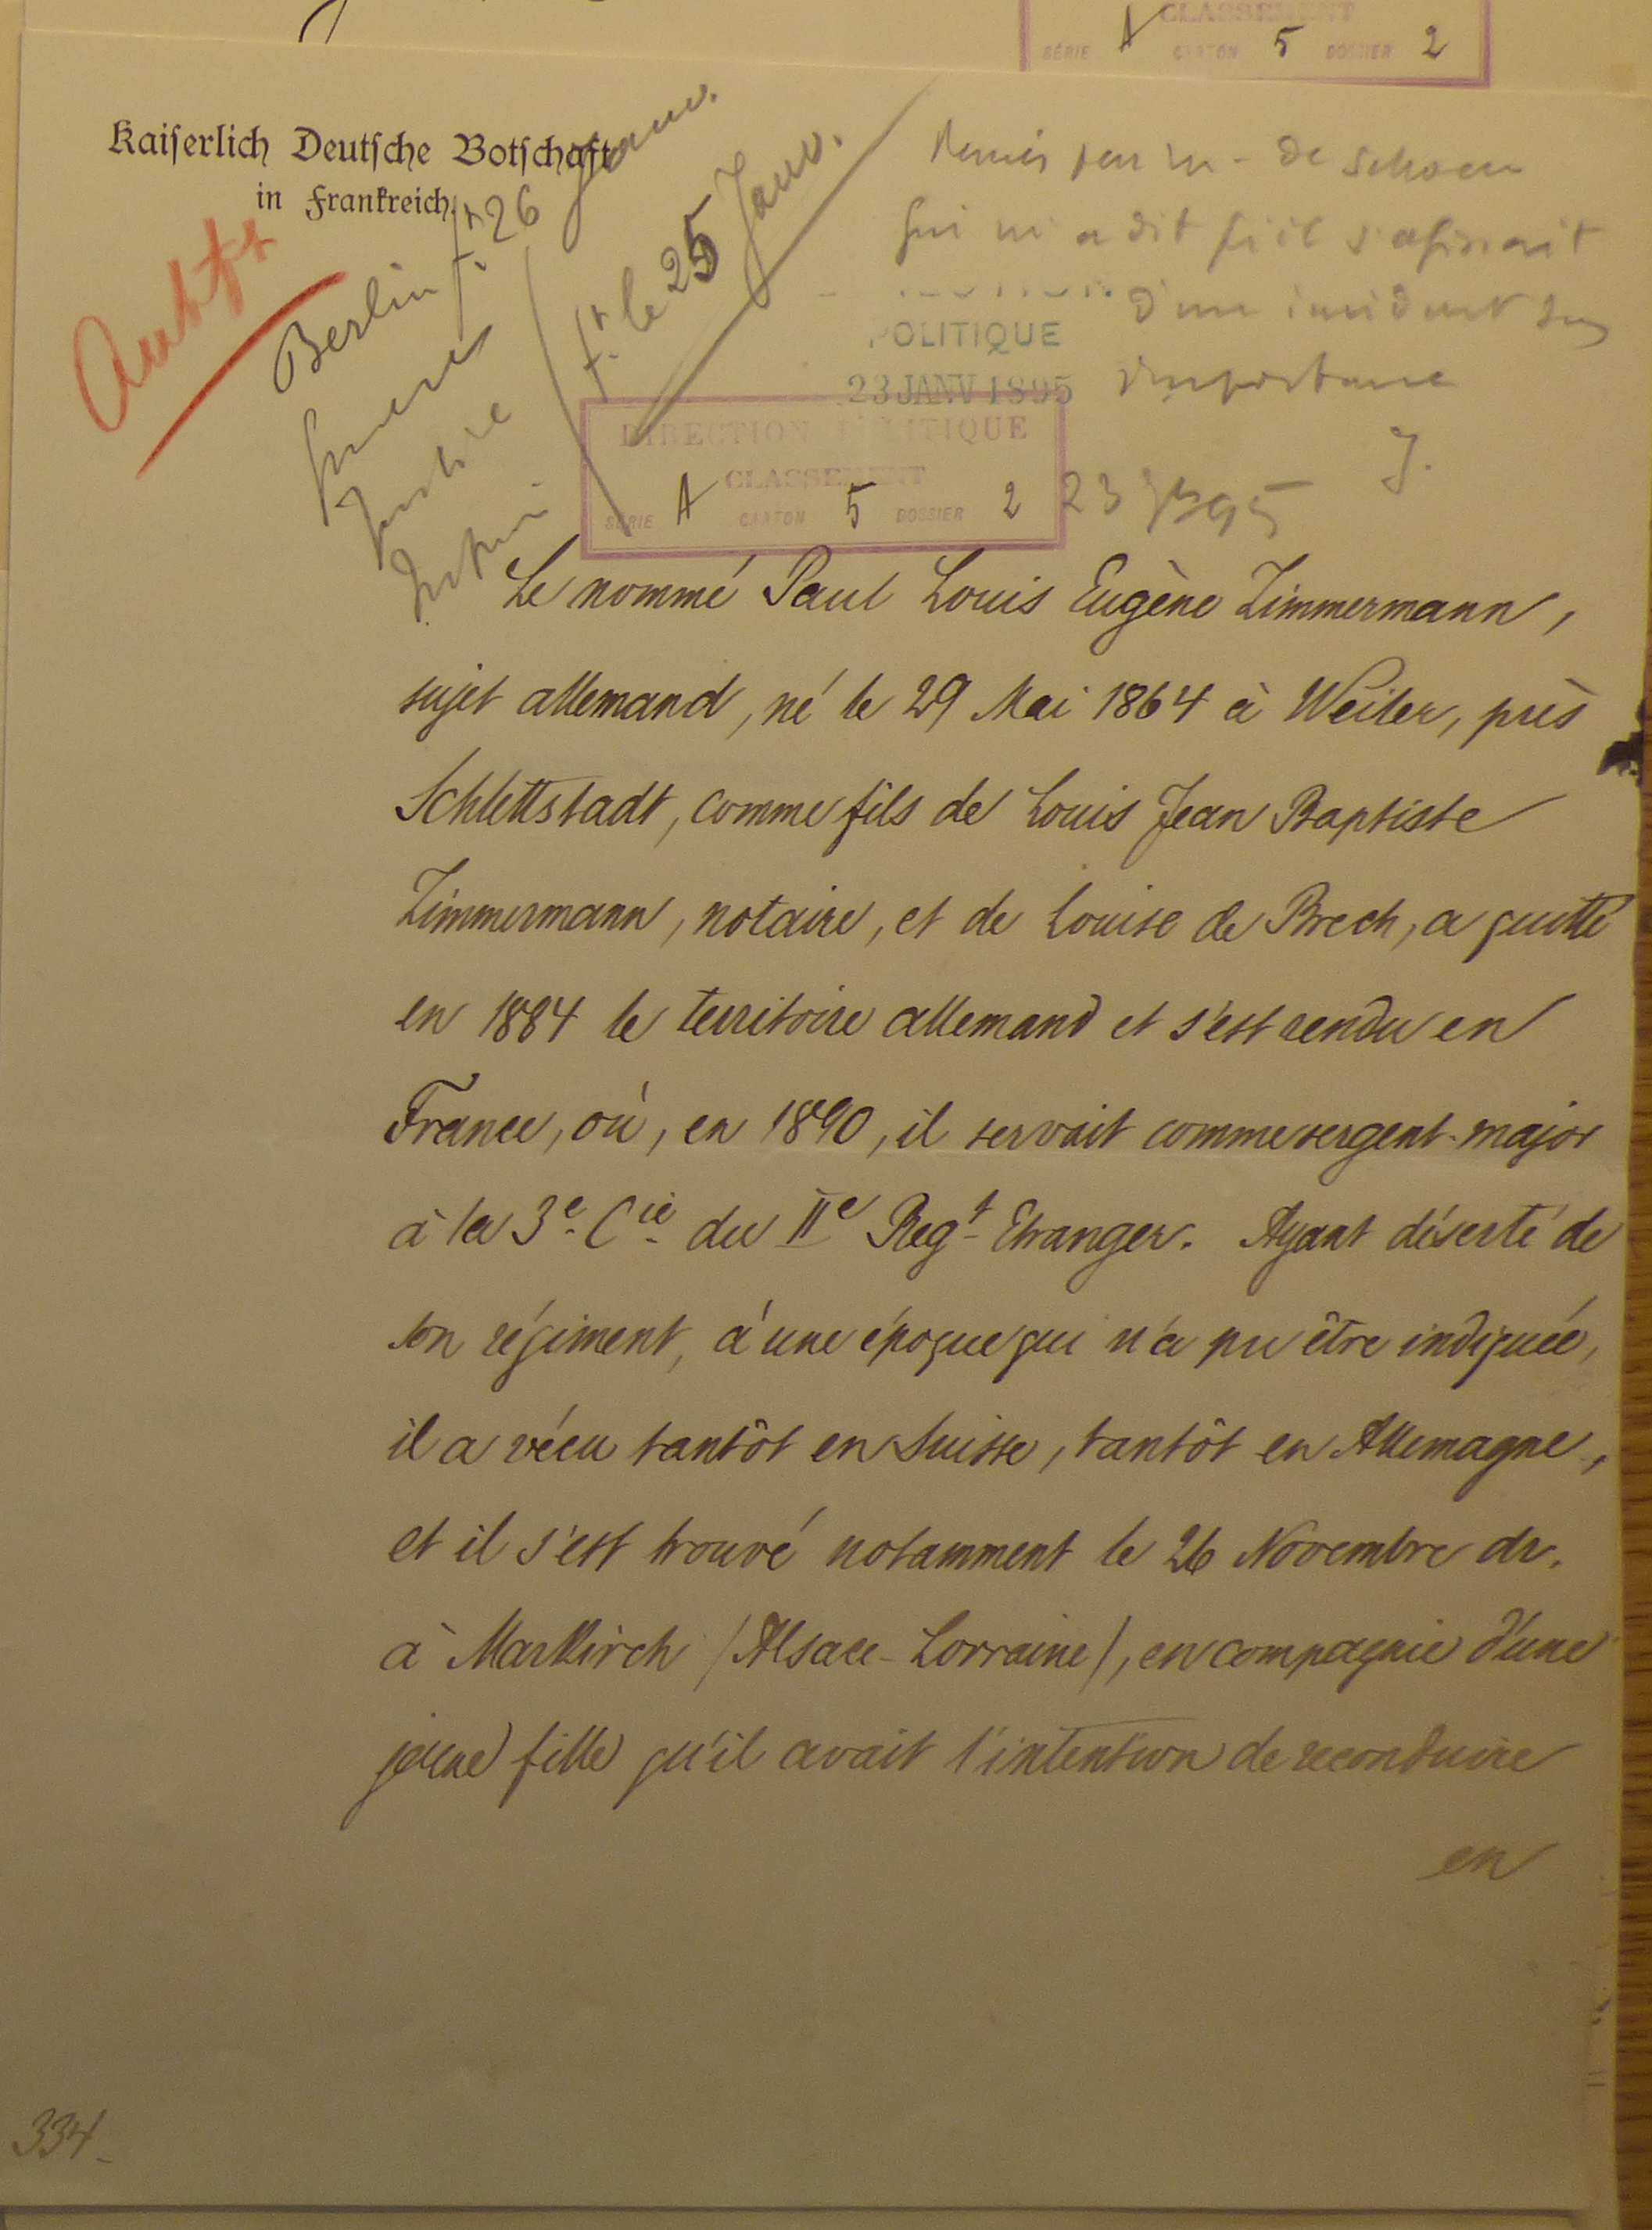 CLASSEMENT
SÉRIE A CARTON 5 DOSSIER 2
Kaiserlich Deutsche Botschaft
in Frankreich.
Berlin f. 26 Janv.
Guerre
Justice
f. le 25 Janv.
Remis par M. de Schoen
qui m'a dit qu'il s'agissait
d'un incident sans
importance
J.
23 J 95
POLITIQUE
23 JANV 1895
DIRECTION POLITIQUE
CLASSEMENT
SÉRIE A CARTON 5 DOSSIER 2
Le nommé Paul Louis Eugène Zimmermann,
sujet allemand, né le 29 Mai 1864 à Weiler, près
Schlettstadt, comme fils de Louis Jean Baptiste
Zimmermann, notaire, et de Louise de Brech, a quitté
en 1884 le territoire allemand et s'est rendu en
France, où, en 1890, il servait comme sergent-major
à la 3e Cie du IIe Regt Etranger. Ayant déserté de
son régiment, à une époque qui n'a pu être indiquée,
il a vécu tantôt en Suisse, tantôt en Allemagne,
et il s'est trouvé notamment le 26 Novembre dr.
à Markirch (Alsace-Lorraine), en compagnie d'une
jeune fille qu'il avait l'intention de reconduire
en
334